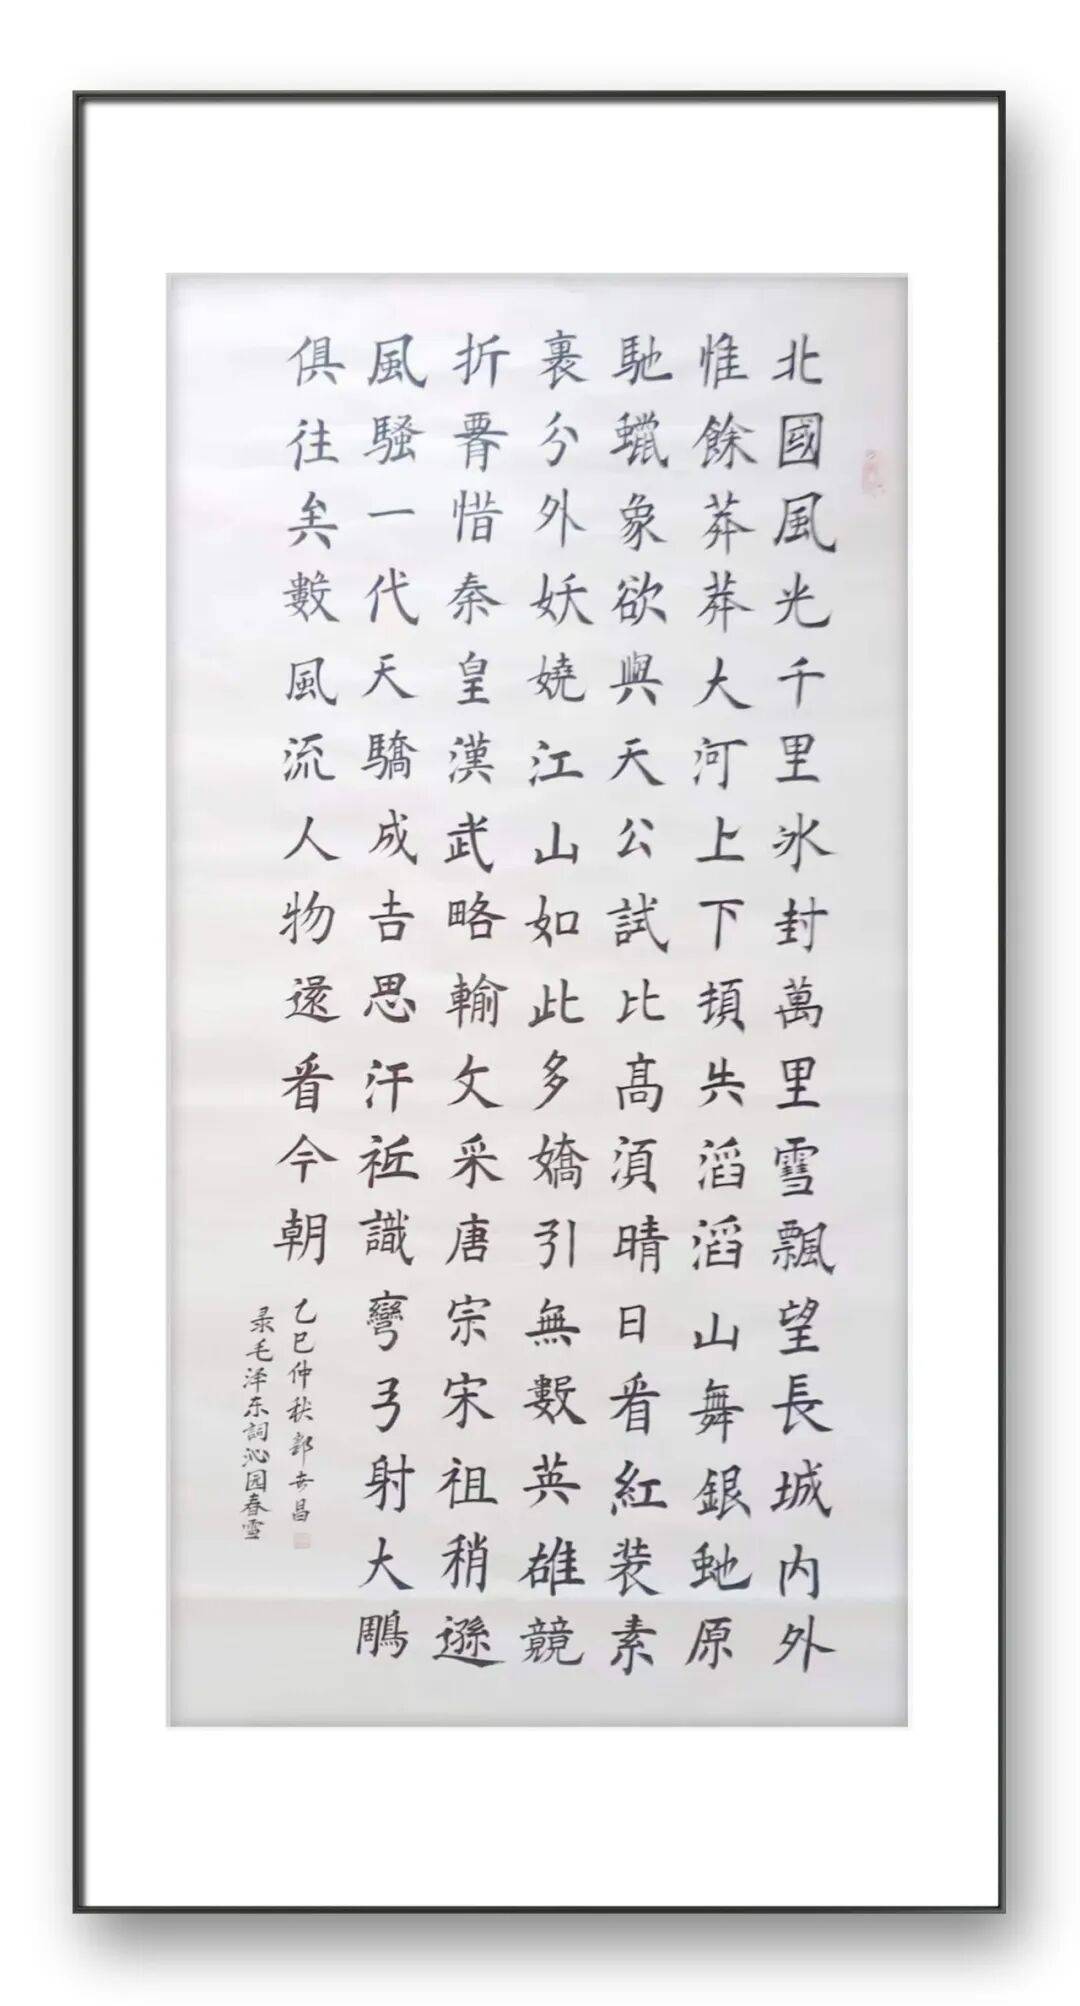 北國風光千里冰封萬里雪飄望長城内外
惟餘莽莽大河上下頓失滔滔山舞銀虵原
馳蠟象欲與天公試比高須晴日看紅装素
裹分外妖嬈江山如此多嬌引無數英雄競
折腰惜秦皇漢武略輸文采唐宗宋祖稍遜
風騷一代天驕成吉思汗祇識彎弓射大鵰
俱往矣數風流人物還看今朝
乙巳仲秋 昌
录毛泽东詞沁园春雪